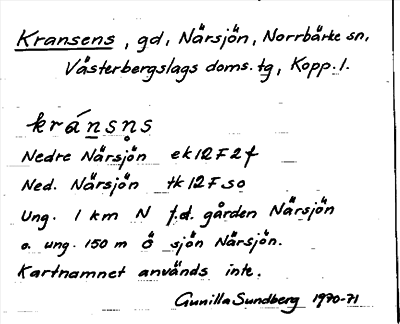 Kransens, gd, Närsjön, Norrbärke sn,
Västerbergslags doms. tg, Kopp. l.
kránsn̥s
Nedre Närsjön ek 12 F 2 f
Ned. Närsjön tk 12 F so
Ung. 1 km N f.d. gården Närsjön
o. ung. 150 m Ö sjön Närsjön.
Kartnamnet används inte.
Gunilla Sundberg 1970-71